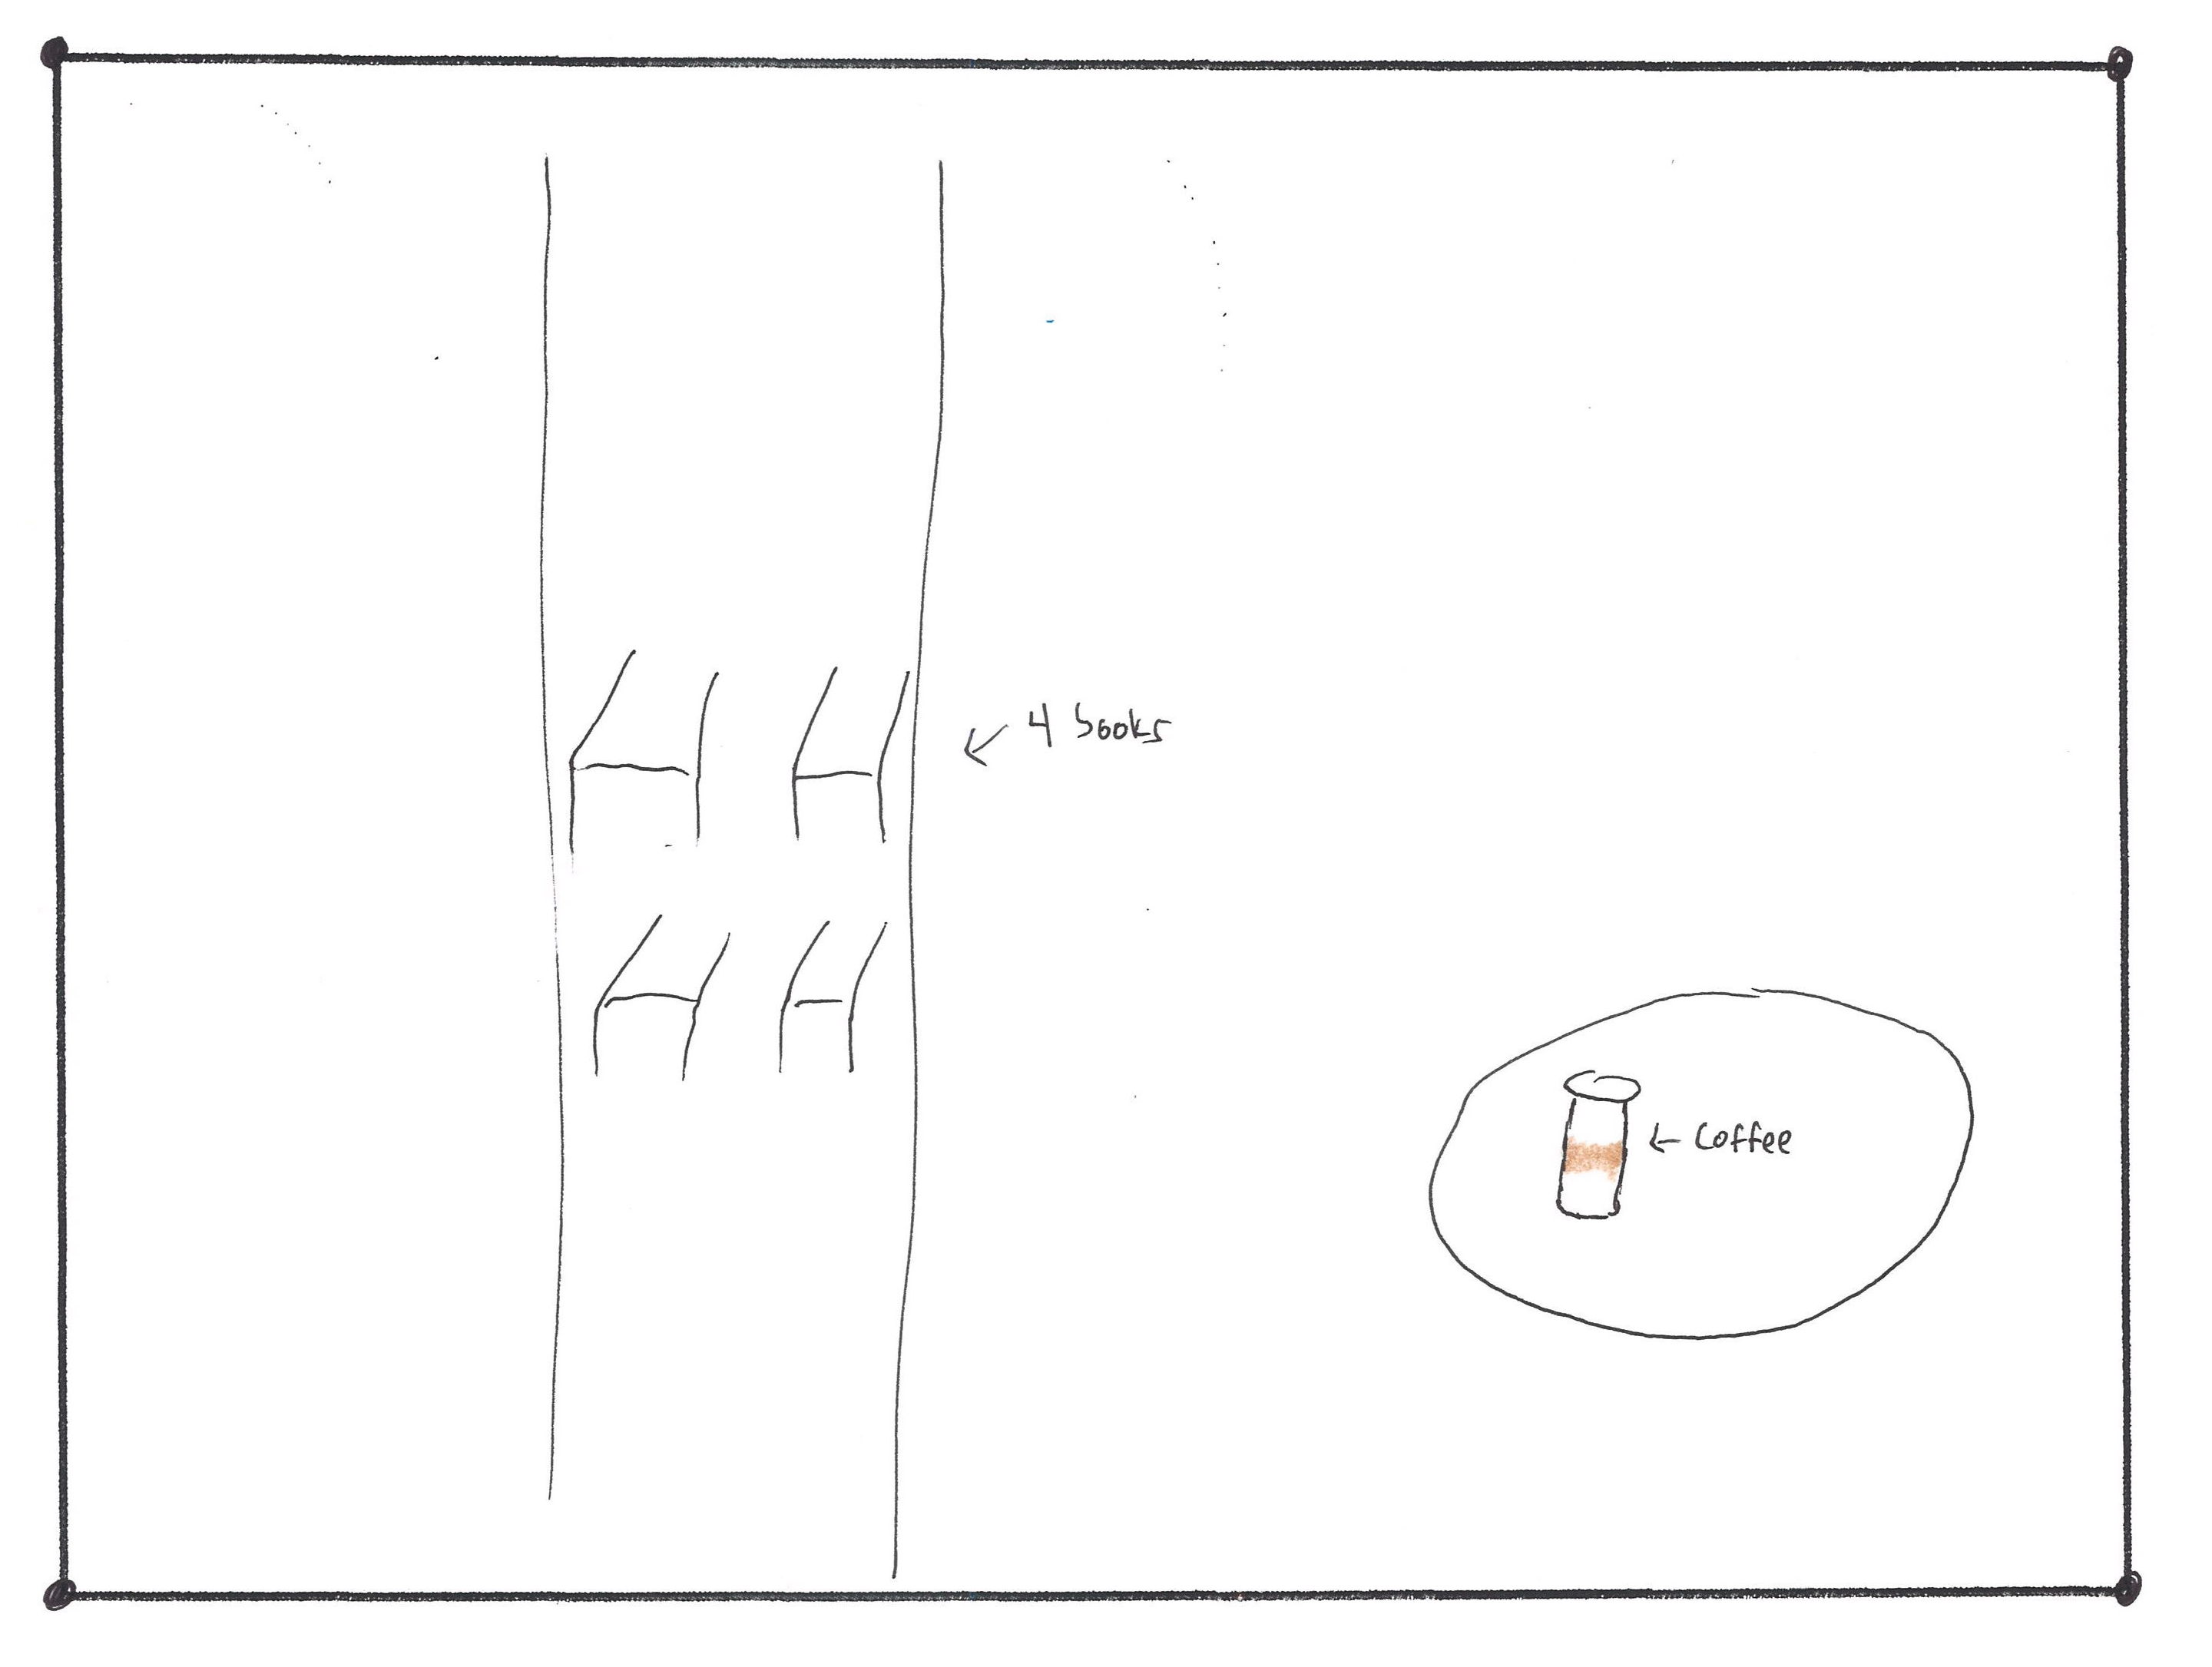 4 books
Coffee